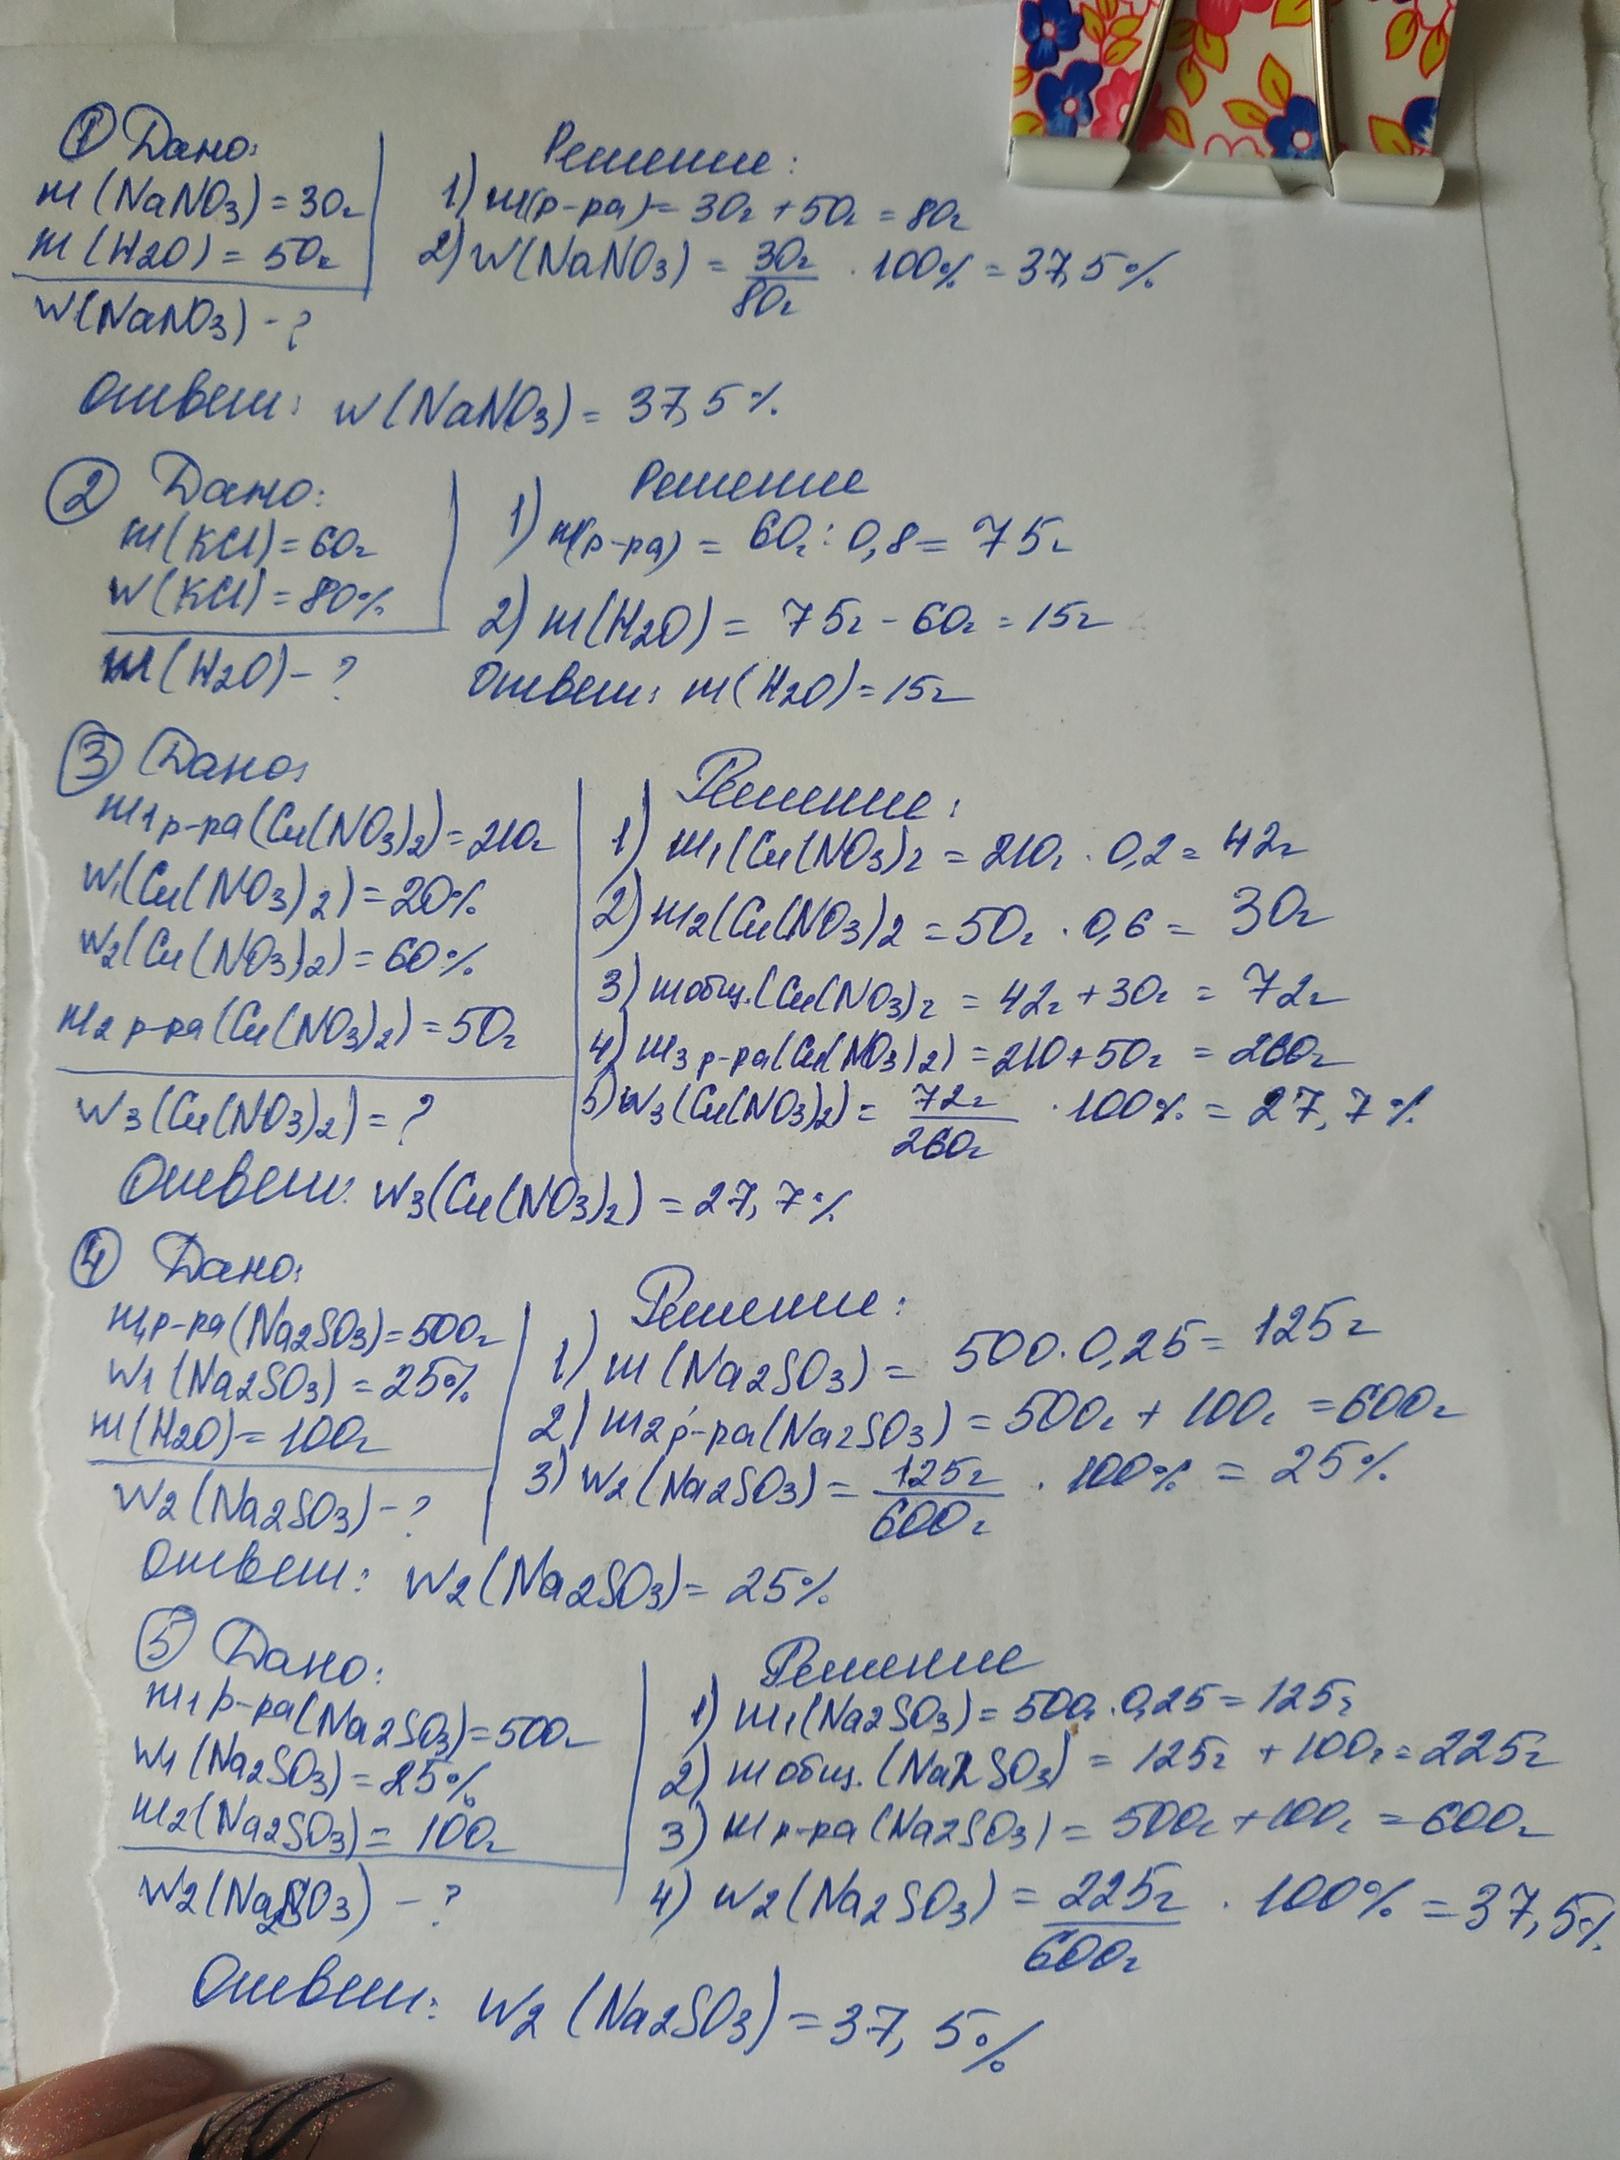 ① Дано:
m(NaNO3)=30г
m(H2O)=50г
w(NaNO3)-?
Решение:
1) m(р-ра)=30г+50г=80г
2) w(NaNO3)=30г/80г·100%=37,5%
Ответ: w(NaNO3)=37,5%
② Дано:
m(KCl)=60г
w(KCl)=80%
m(H2O)-?
Решение
1) m(р-ра)=60г:0,8=75г
2) m(H2O)=75г-60г=15г
Ответ: m(H2O)=15г
③ Дано:
m1 р-ра(Cu(NO3)2)=210г
w1(Cu(NO3)2)=20%
w2(Cu(NO3)2)=60%
m2 р-ра(Cu(NO3)2)=50г
w3(Cu(NO3)2)=?
Решение:
1) m1(Cu(NO3)2=210г·0,2=42г
2) m2(Cu(NO3)2=50г·0,6=30г
3) mобщ.(Cu(NO3)2=42г+30г=72г
4) m3 р-ра(Cu(NO3)2)=210+50г=260г
5) w3(Cu(NO3)2)=72г/260г·100%=27,7%
Ответ: w3(Cu(NO3)2)=27,7%
④ Дано:
m1р-ра(Na2SO3)=500г
w1(Na2SO3)=25%
m(H2O)=100г
w2(Na2SO3)-?
Решение:
1) m(Na2SO3)=500·0,25=125г
2) m2р-ра(Na2SO3)=500г+100г=600г
3) w2(Na2SO3)=125г/600г·100%=25%
Ответ: w2(Na2SO3)=25%
⑤ Дано:
m1 р-ра(Na2SO3)=500г
w1(Na2SO3)=25%
m2(Na2SO3)=100г
w2(Na2SO3)-?
Решение
1) m1(Na2SO3)=500г·0,25=125г
2) mобщ.(Na2SO3)=125г+100г=225г
3) mр-ра(Na2SO3)=500г+100г=600г
4) w2(Na2SO3)=225г/600г·100%=37,5%
Ответ: w2(Na2SO3)=37,5%